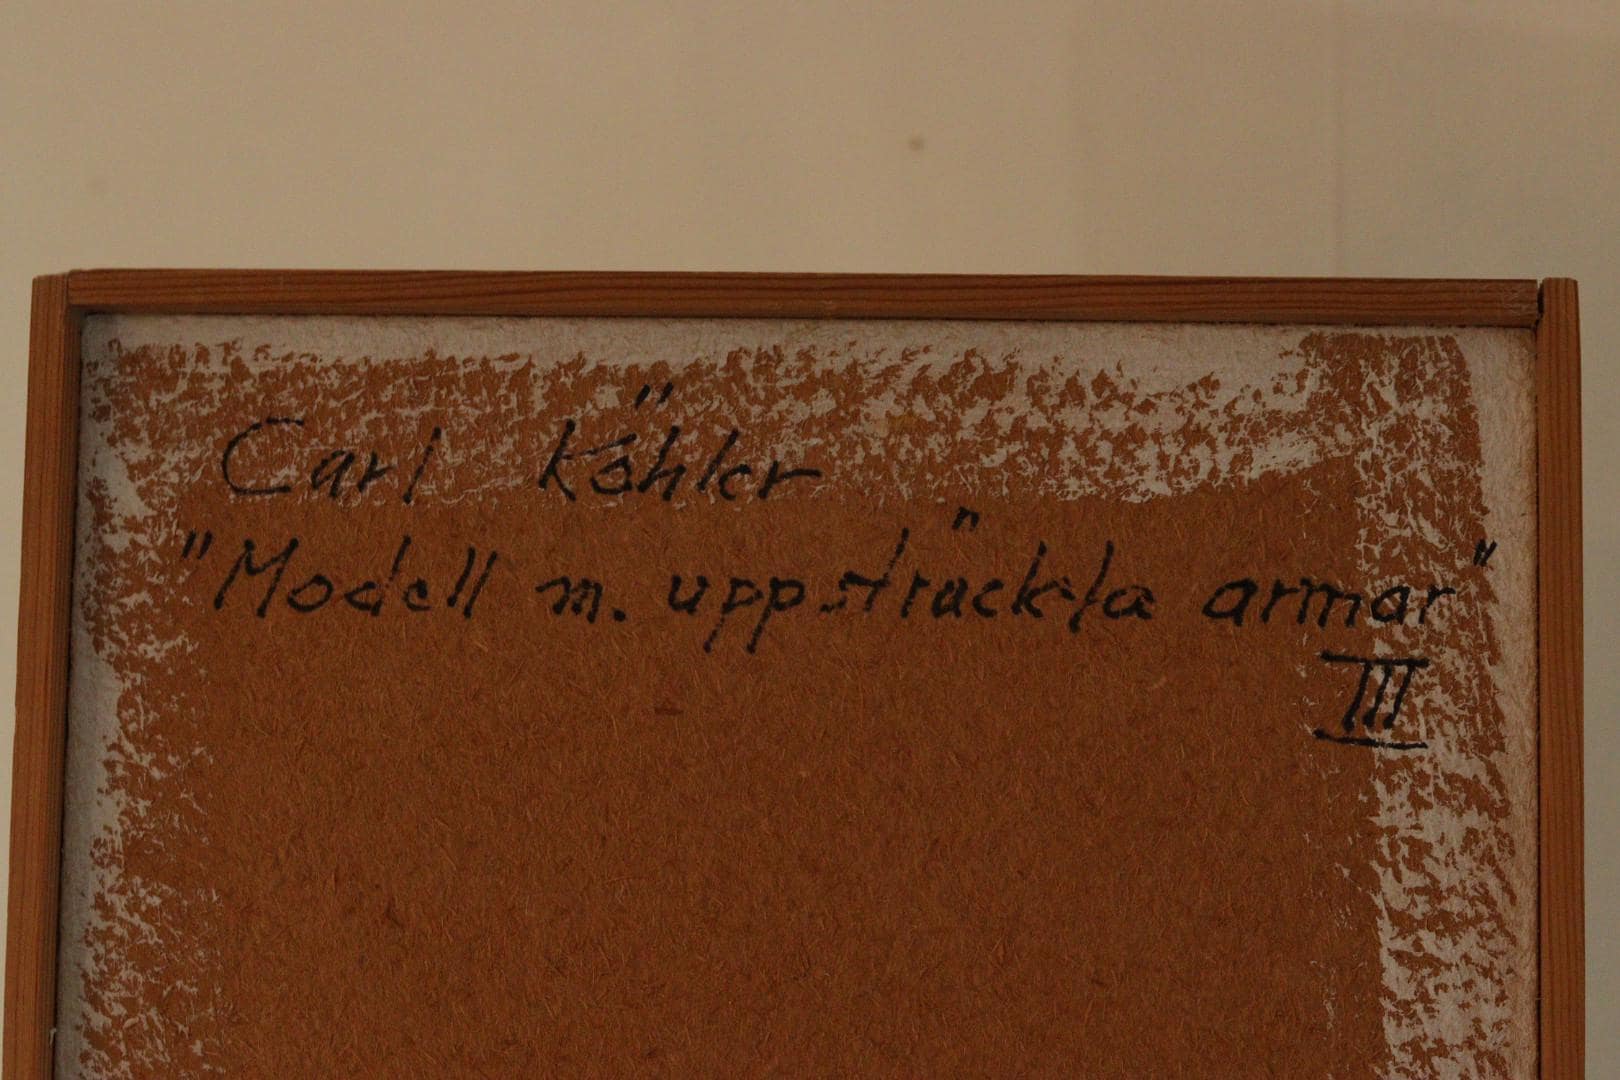 Carl Köhler
"Modell m. uppsträckta armar"
III